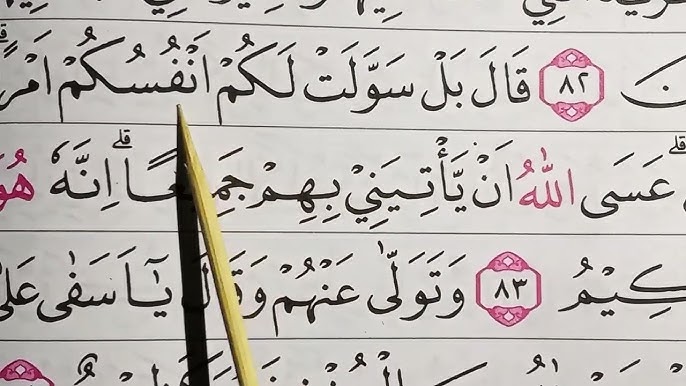 نَ ٨٢ قَالَ بَلْ سَوَّلَتْ لَكُمْ اَنْفُسُكُمْ اَمْرً
عَسَى اللّٰهُ اَنْ يَّأْتِيَنِيْ بِهِمْ جَمِيْعًاۗ اِنَّهٗ هُوَ
كِيْمُ ٨٣ وَتَوَلّٰى عَنْهُمْ وَقَالَ يٰٓاَسَفٰى عَلٰ